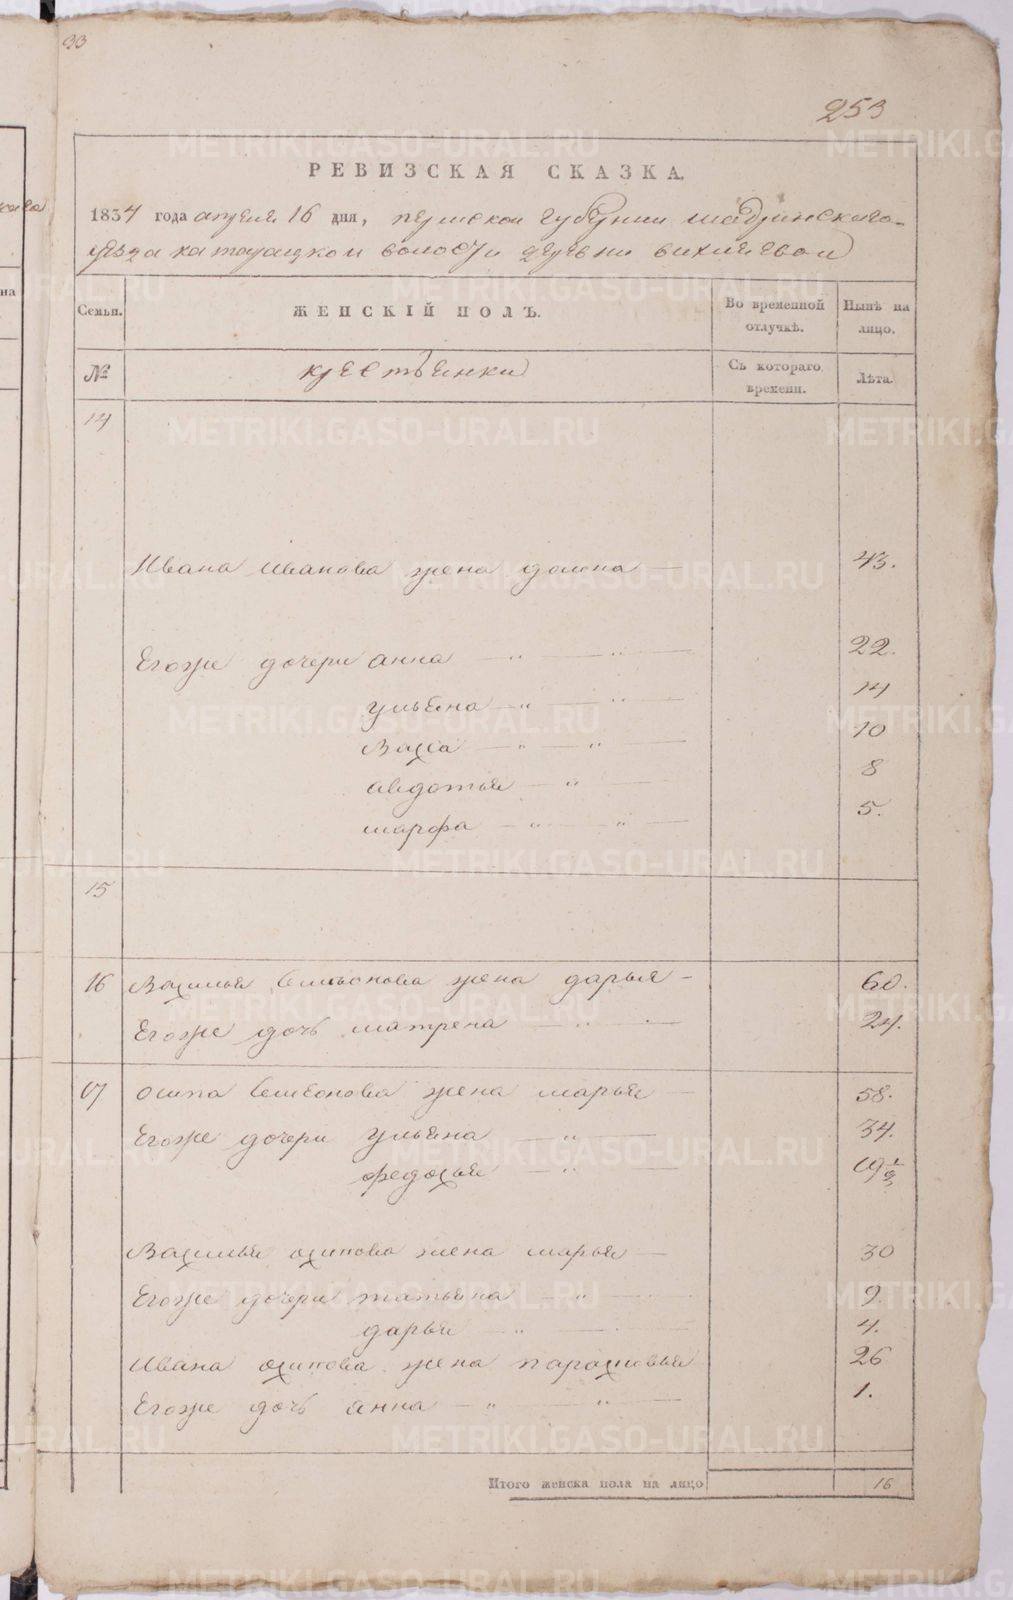 33
253
РЕВИЗСКАЯ СКАЗКА.
1834 года апреля 16 дня, пермской губернии шадринского
уезда катайцкой волости деревни
Семьи. ЖЕНСКІЙ ПОЛЪ. Во временной отлучкѣ. Нынѣ на лицо.
№ крестьенки Съ котораго времени. Лѣта.
14
Ивана Иванова жена домна 43.
Егоже дочери анна 22.
ульена 14
Васса 10
авдотья 8
марфа 5.
15
16 Василья Симионова жена дарья 60.
Егоже дочь матрена 24.
17 осипа Семионова жена марья 58.
Егоже дочери ульена 34.
федосья 19 1/2
Василья осипова жена марья 30
Егоже дочери татьяна 9
дарья 4.
Ивана осипова жена парасковья 26
Егоже дочь анна 1.
Итого женска пола на лицо 16
METRIKI.GASO-URAL.RU